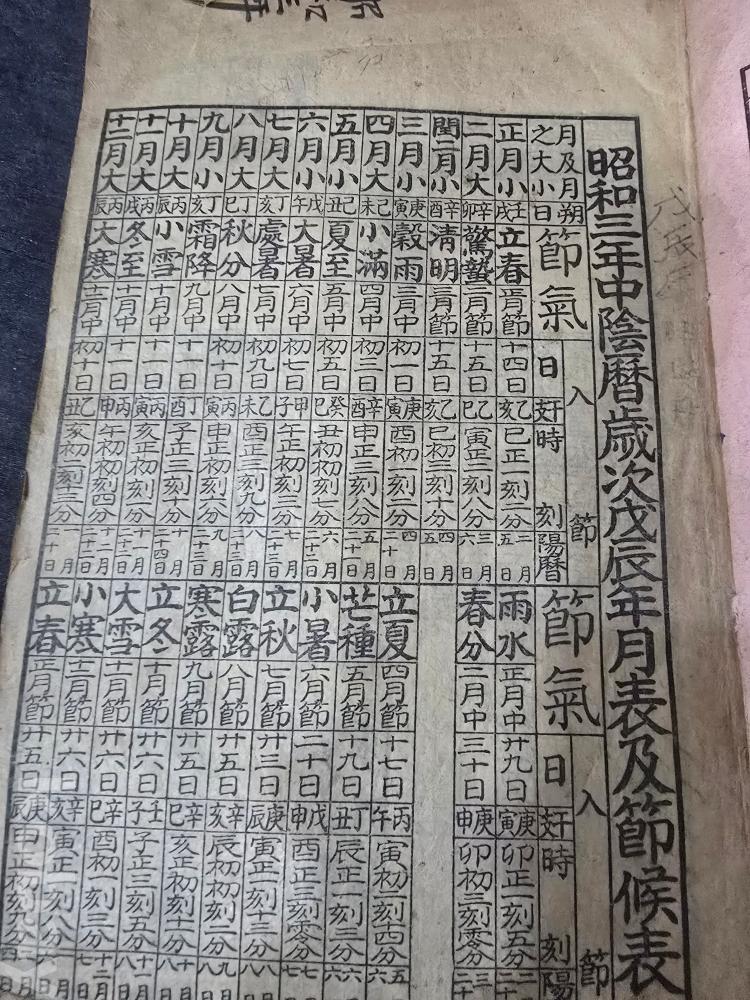 昭和三年中陰暦歳次戊辰年月表及節候表
月及月之大小 朔日 節氣 入節 日 干支 時刻 陽曆 節氣 入節 日 干支 時刻 陽
正月小 壬戌 立春 正月節 十四日 乙亥 巳正一刻二分 五日 雨水 正月中 廿九日 庚寅 卯正一刻五分
二月大 辛卯 驚蟄 二月節 十五日 乙巳 寅正三刻八分 三月六日 春分 二月中 三十日 庚申 卯初三刻零分
閏二月小 辛酉 清明 三月節 十五日 乙亥 巳初三刻十四分 四月五日
三月小 庚寅 穀雨 三月中 初一日 庚寅 酉初一刻二分 四月二十日 立夏 四月節 十七日 丙午 寅初一刻十四分
四月大 己未 小滿 四月中 初三日 辛酉 申正三刻八分 五月 芒種 五月節 十九日 丁丑 辰正一刻三分
五月小 己丑 夏至 五月中 初五日 癸巳 丑初初刻六分 六月 小暑 六月節 二十日 戊申 酉正三刻零分
六月小 戊午 大暑 六月中 初七日 甲子 午正初刻三分 七月二十三日 立秋 七月節 廿三日 庚辰 寅正一刻十三分
七月大 丁亥 處暑 七月中 初九日 乙未 酉正三刻九分 白露 八月節 廿五日 辛亥 辰初初刻二分
八月大 丁巳 秋分 八月中 初十日 丙寅 申正初刻 九月二十三日 寒露 九月節 廿五日 辛巳 亥正初刻十一分
九月小 丁亥 霜降 九月中 十一日 丁酉 子正三刻 十月二十四日 立冬 十月節 廿六日 壬子 子正三刻五分
十月大 丙辰 小雪 十月中 十一日 丙寅 亥正初刻三分 大雪 十一月節 廿六日 辛巳 酉初初刻三分
十一月大 丙戌 冬至 十一月中 十一日 丙申 午初初刻四分 十二月二十二日 小寒 十二月節 廿六日 辛亥 寅正一刻八分
十二月大 丙辰 大寒 十二月中 初十日 乙丑 亥初二刻三分 一月二十日 立春 正月節 廿五日 庚辰 申正初刻九分